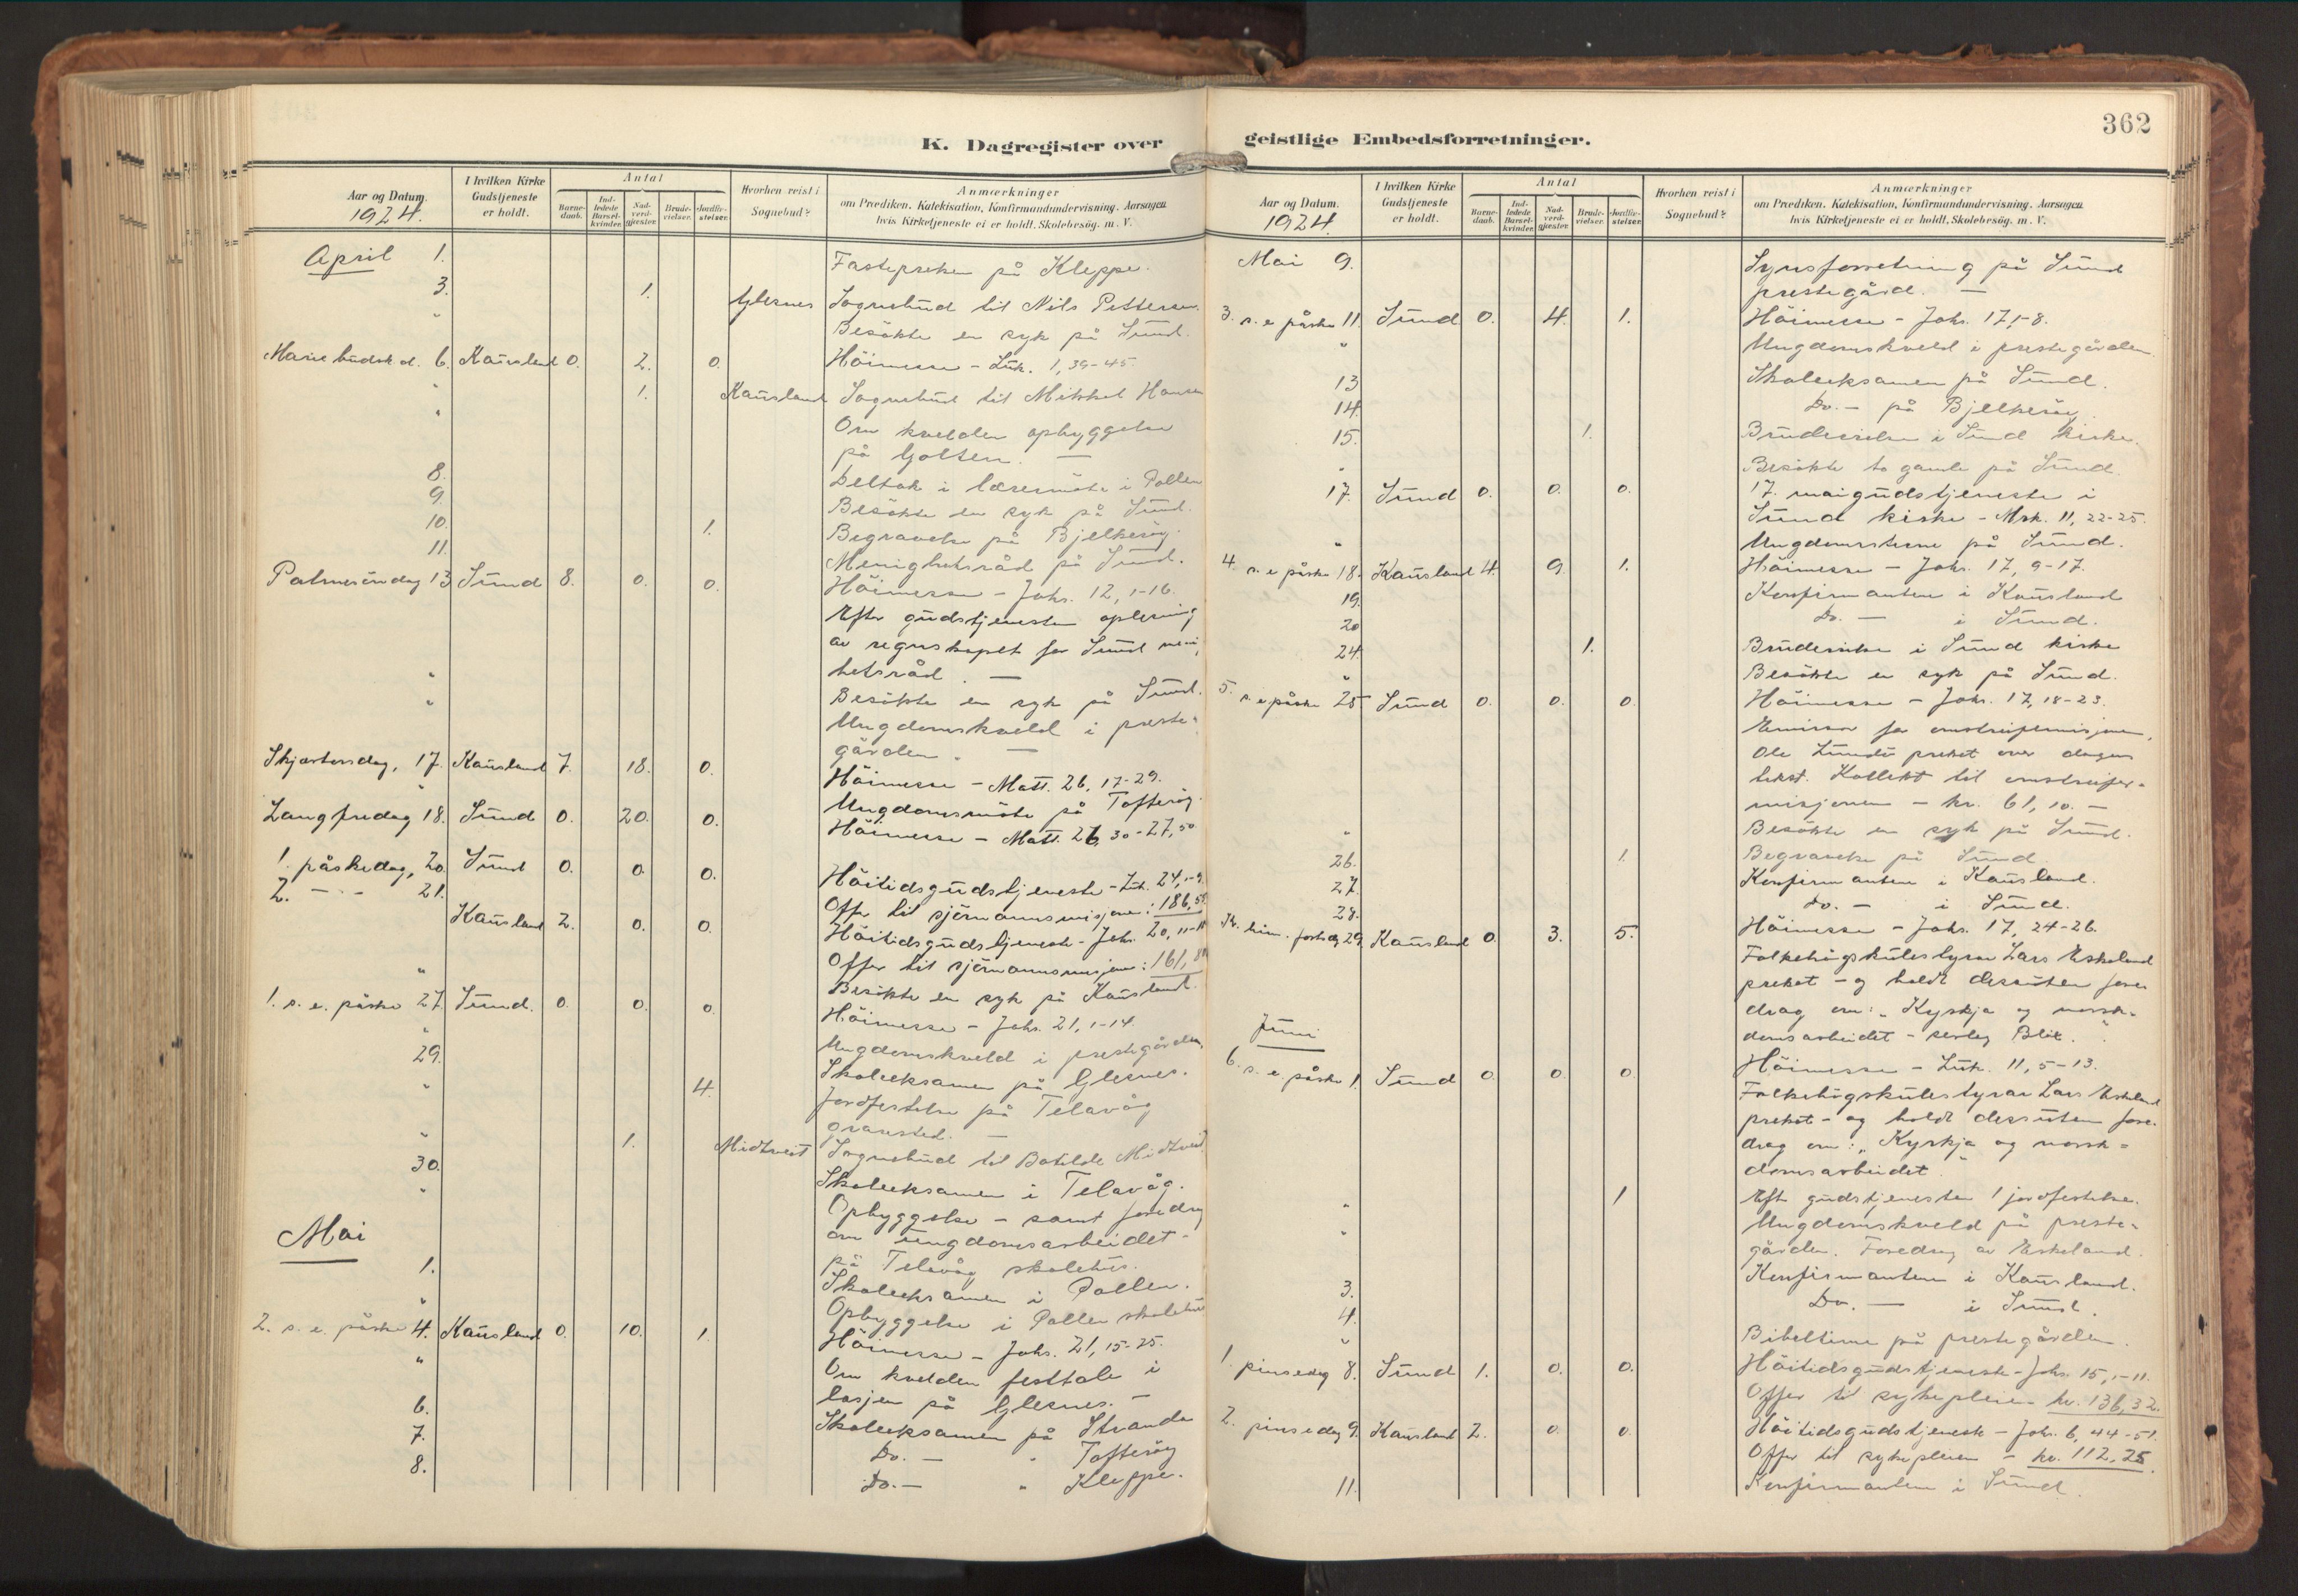 K. Dagregister over
Aar og Datum. 1924. | I hvilken Kirke Gudstjeneste er holdt. | Antal | Barne-daab. | Ind-ledede Barsel-kvinder. | Nad-verd-gjester. | Brude-vielser. | Jordfæ-stelser. | Hvorhen reist i Sognebud? | Anmærkninger om Prædiken, Katekisation, Konfirmandundervisning. Aarsagen hvis Kirketjeneste ei er holdt. Skolebesøg. m. V.
April 1. Fastepreken på Kleppe.
3. 1. Glesnes Sognebud til Nils Pettersen.
" Besökte en syk på Sund.
Marie budsk.d. 6. Kausland 0. 2. 0. Höimesse - Luk. 1, 39-45.
" 1. Kausland Sognebud til Mikkel Hansen
" Om kvelden opbyggelse
på Golten. —
8. Deltok i læremöte i Pollen
9. Besökte en syk på Sund.
10. 1. Begravelse på Bjelkeröy.
11. Menighetsråd på Sund.
Palmesöndag 13. Sund 8. 0. 0. Höimesse - Johs. 12, 1-16.
Efter gudstjenesten oplesning
av regnskapet for Sund menig-
hetsråd. —
" Besökte en syk på Sund.
" Ungdomskveld i preste-
gården. —
Skjærtorsdag, 17. Kausland 7. 18. 0. Höimesse - Matt. 26, 17-29.
" Ungdomsmöte på Tofteröy.
Langfredag 18. Sund 0. 20. 0. Höimesse - Matt. 26, 30-27, 50
1. påskedag, 20. Sund 0. 0. 0. Höitidsgudstjeneste - Luk. 24, 1-9.
Offer til sjömannsmisjonen: 186,
2. - - 21. Kausland 2. 0. 0. Höitidsgudstjeneste - Johs. 20, 11-18
Offer til sjömannsmisjonen: 161,
" Besökte en syk på Kausland.
1. s. e. påske 27. Sund. 0. 0. 0. Höimesse - Johs. 21, 1-14.
" Ungdomskveld i prestegården.
29. Skoleeksamen på Glesnes.
" 4. Jordfestelse på Telavåg
gravsted. —
" 1. Midtveit Sognebud til Botilde Midtveit
30. Skoleeksamen i Telavåg.
" Opbyggelse - samt foredrag
om ungdomsarbeidet -
på Telavåg skolehus.
Mai
1. Skoleeksamen i Pollen.
" Opbyggelse i Pollen skolehus
2. s. e. påske 4. Kausland 0. 10. 1. Höimesse - Johs. 21, 15-25.
" Om kvelden festtale i
losjen på Glesnes. —
6. Skoleeksamen på Strande
7. Do. — " Tofteröy
8. Do. — " Kleppe.
geistlige Embedsforretninger.
362
Aar og Datum. 1924. | I hvilken Kirke Gudstjeneste er holdt. | Antal | Barne-daab. | Ind-ledede Barsel-kvinder. | Nad-verd-gjester. | Brude-vielser. | Jordfæ-stelser. | Hvorhen reist i Sognebud? | Anmærkninger om Prædiken, Katekisation, Konfirmandundervisning. Aarsagen hvis Kirketjeneste ei er holdt. Skolebesøg. m. V.
Mai 9. Synsforretning på Sund
prestegård. —
3. s. e påske 11. Sund 0. 4. 1. Höimesse - Johs. 17, 1-8.
" Ungdomskveld i prestegården.
13 Skoleeksamen på Sund.
14. Do. — på Bjelkeröy.
15. 1. Brudevielse i Sund kirke.
" Besökte to gamle på Sund.
17. Sund 0. 0. 0. 17. maigudstjeneste i
Sund kirke - Mrk. 11, 22-25.
" Ungdomsstevne på Sund.
4. s. e påske 18. Kausland 4. 9. 1. Höimesse - Johs. 17, 9-17.
19. Konfirmanten i Kausland
20 Do. — i Sund.
24. 1. Brudevielse i Sund kirke
" Besökte en syk på Sund.
5. s. e påske 25 Sund 0. 0. 0. Höimesse - Johs. 17, 18-23.
Emissær for omstreifermisjonen,
Ole Lunde preket over dagens
tekst. Kollekt til omstreifer-
misjonen - kr. 61,10. —
" Besökte en syk på Sund.
26. 1. Begravelse på Sund
27. Konfirmanten i Kausland.
28. Do. — i Sund.
Kr. him. fartsdag 29. Kausland 0. 3. 5. Höimesse - Johs. 17, 24-26.
Folkehögskulestyrar Lars Eskeland
preket - og holdt dessuten fore-
drag om: "Kyrkja og norsk-
domsarbeidet - serleg Blix."
Juni
6. s. e påske 1. Sund 0. 0. 0. Höimesse - Luk. 11, 5-13.
Folkehögskulestyrar Lars Eskeland
preket - og holdt dessuten fore-
drag om: "Kyrkja og norsk-
domsarbeidet."
" 1 Efter gudstjenesten 1 jordfestelse.
" Ungdomskveld på preste-
gården. Foredrag av Eskeland.
3. Konfirmanten i Kausland.
4. Do. — i Sund.
" Bibeltime på prestegården.
1. pinsedag 8. Sund 1. 0. 0. Höitidsgudstjeneste - Johs. 15, 1-11.
Offer til sykepleien kr. 136,32.
2. pinsedag 9. Kausland 2. 0. 0. Höitidsgudstjeneste - Johs. 6, 44-51.
Offer til sykepleien - kr. 112,25.
11. Konfirmanten i Sund.